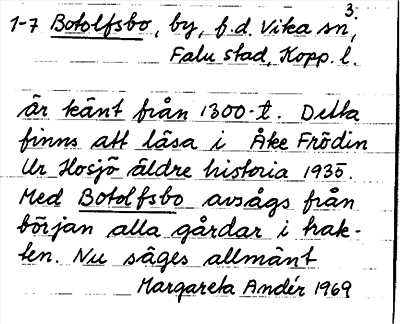 3.
1-7 Botolfsbo, by, f.d. Vika sn,
Falu stad, Kopp. l.
är känt från 1300-t. Detta
finns att läsa i Åke Frödin
Ur Hosjö äldre historia 1935.
Med Botolfsbo avsågs från
början alla gårdar i trak-
ten. Nu säges allmänt
Margareta Andér 1969